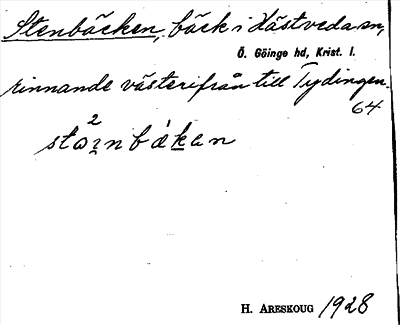 Stenbäcken, bäck i Hästveda sn,
Ö. Göinge hd, Krist. l.
rinnande västerifrån till Tydingen.
64
H. ARESKOUG 1928